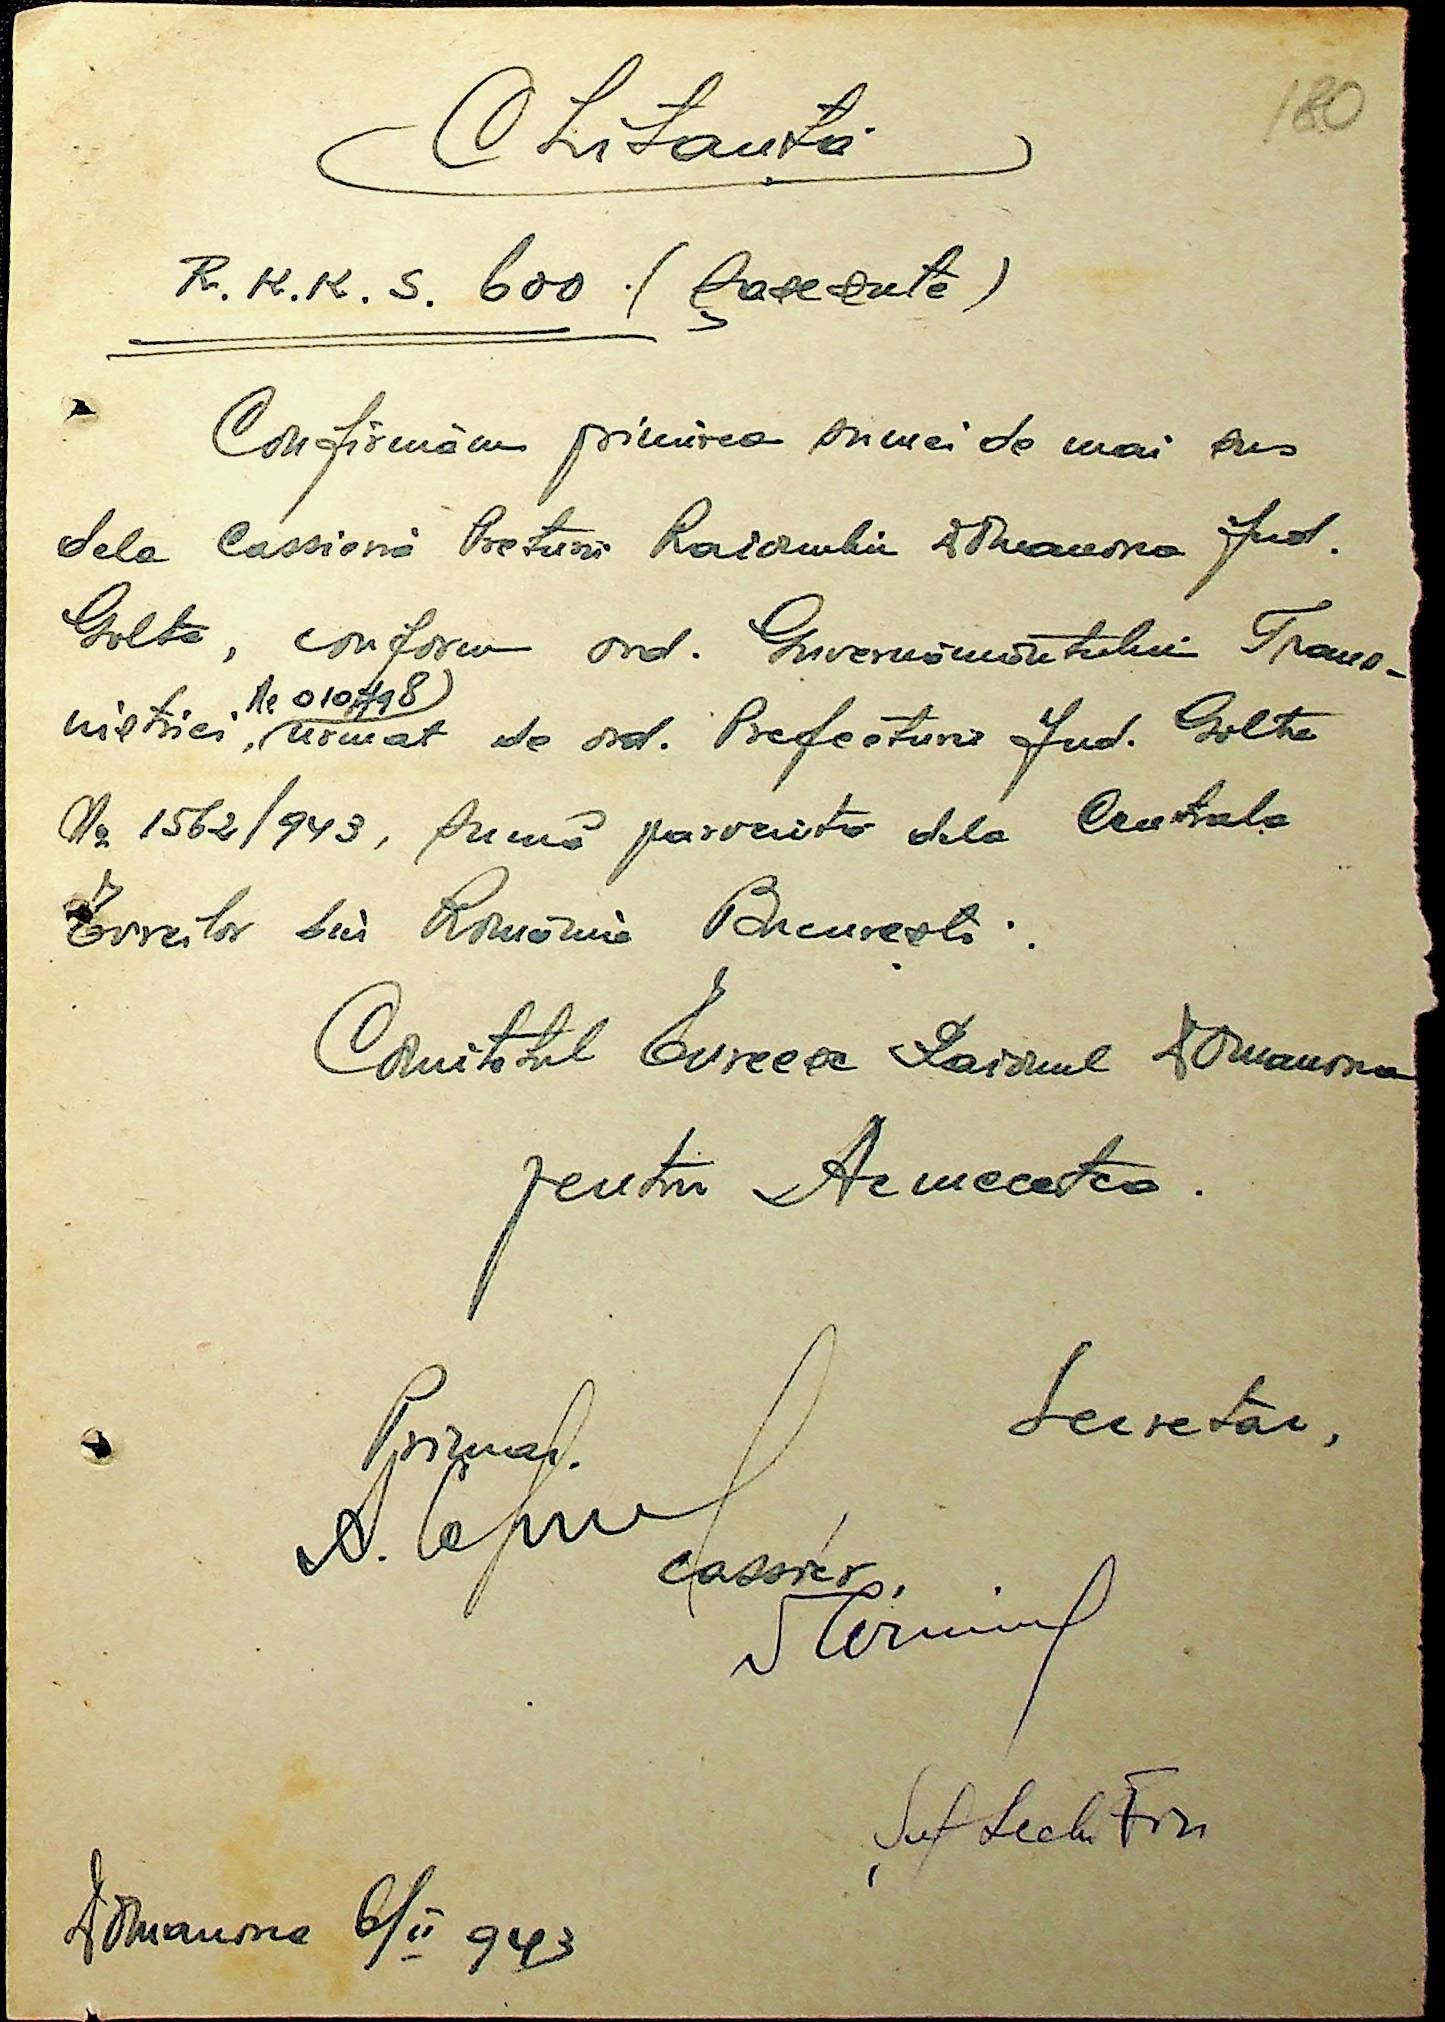 180
Chitanță
R.K.K.S. 600 (șasesute)
Confirmăm primirea sumei de mai sus
dela Cassieria Preturii Raionului Domaniovca Jud.
Golta, conform ord. Guvernământului Trans-
nistriei, № 010798) urmat de ord. Prefecturii Jud. Golta
№ 1562/943, sumă parvenită dela Centrala
Evreilor din România București.
Comitetul Evreesc Raionul Domaniovca
pentru Acmecetca.
Primar. Secretar,
Cassier,
Șef Secți Fin
Domaniovca 6/II 943